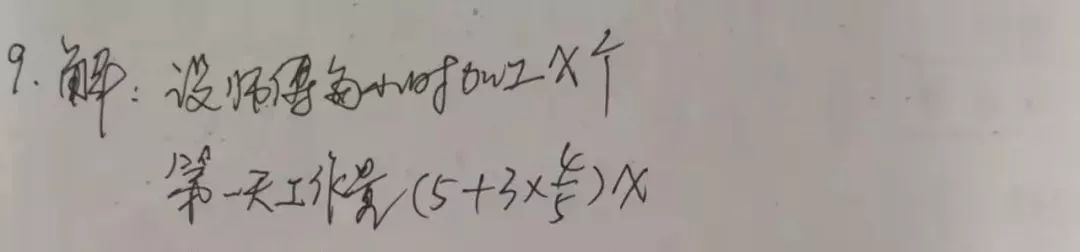 9. 解：设师傅每小时加工X个
第一天工作量(5+3×4/5)X